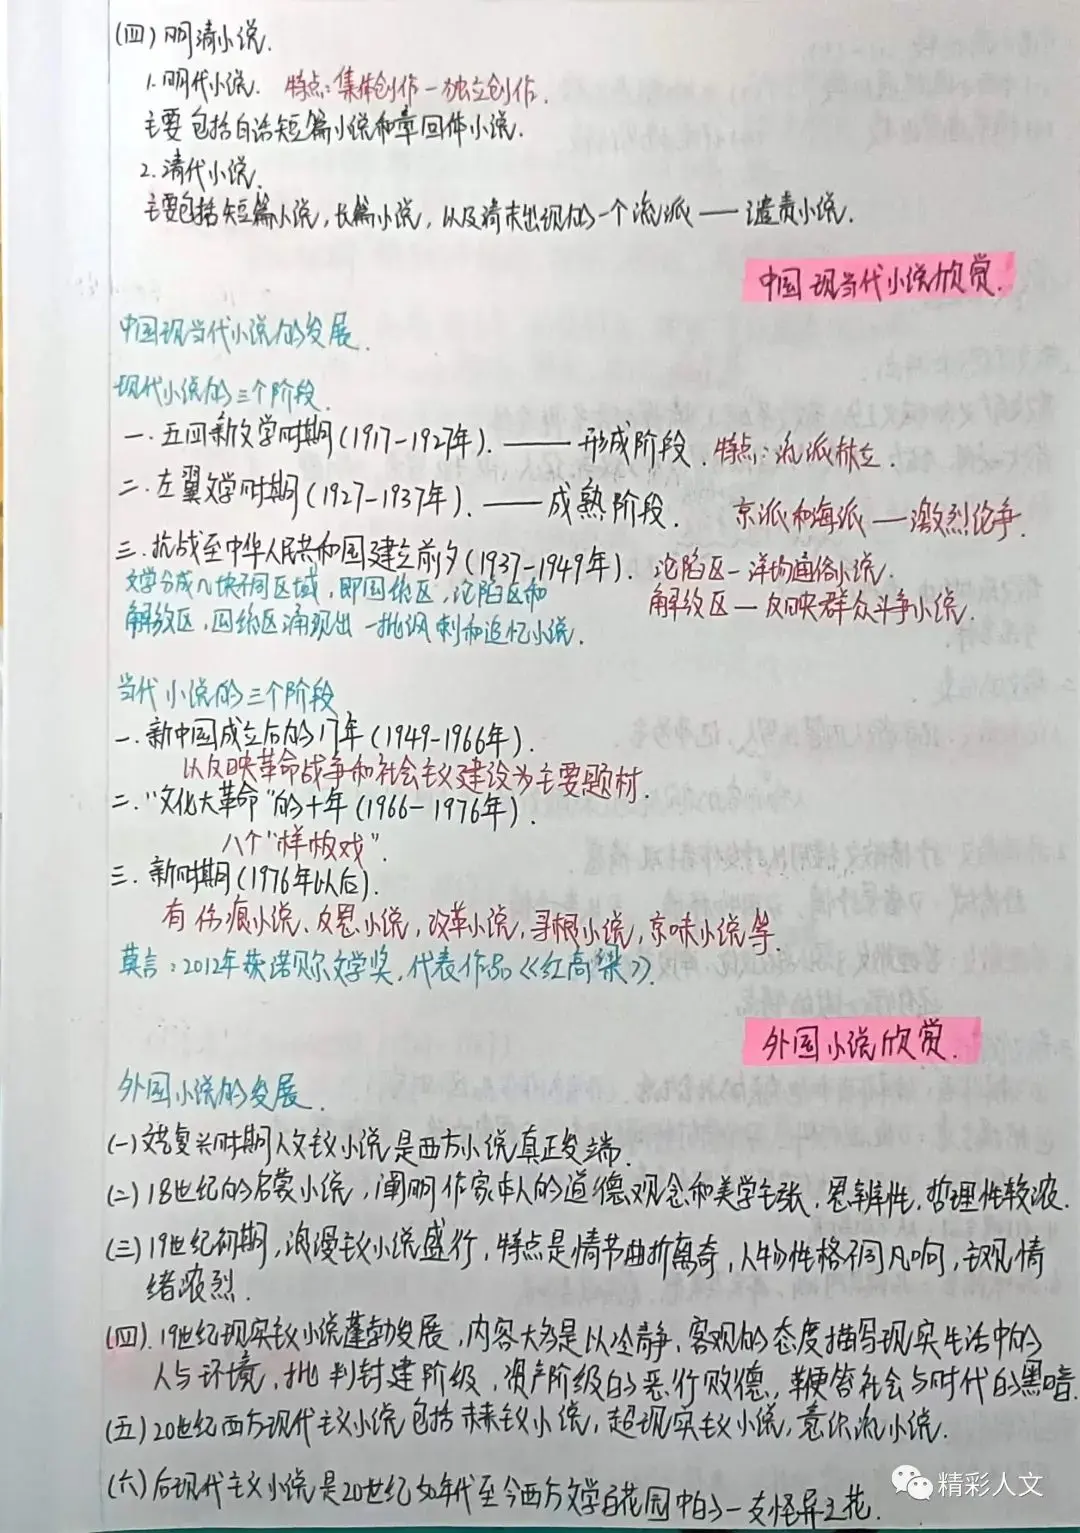 (四)明清小说.
1.明代小说. 特点:集体创作－独立创作.
主要包括白话短篇小说和章回体小说.
2.清代小说.
主要包括短篇小说,长篇小说,以及清末出现的一个流派——谴责小说.
中国现当代小说欣赏.
中国现当代小说的发展.
现代小说的三个阶段.
一.五四新文学时期(1917-1927年).——形成阶段.特点:流派林立.
二.左翼文学时期(1927-1937年).——成熟阶段. 京派和海派——激烈论争.
三.抗战至中华人民共和国建立前夕(1937-1949年). 沦陷区－洋场通俗小说.
文学分成几块不同区域,即国统区,沦陷区和 解放区－反映群众斗争小说.
解放区,国统区涌现出一批讽刺和追忆小说.
当代小说的三个阶段
一.新中国成立后的17年(1949-1966年).
以反映革命战争和社会主义建设为主要题材.
二."文化大革命"的十年(1966-1976年).
八个"样板戏".
三.新时期(1976年以后).
有伤痕小说、反思小说,改革小说,寻根小说,京味小说等.
莫言:2012年获诺贝尔文学奖,代表作品《红高粱》.
外国小说欣赏.
外国小说的发展.
(一)文艺复兴时期人文主义小说是西方小说真正发端.
(二)18世纪的启蒙小说,阐明作家本人的道德观念和美学主张.思辨性,哲理性较浓.
(三)19世纪初期,浪漫主义小说盛行,特点是情节曲折离奇,人物性格不同凡响,主观情
绪浓烈.
(四).19世纪现实主义小说蓬勃发展,内容大多是以冷静,客观的态度描写现实生活中的
人与环境,批判封建阶级,资产阶级的恶行败德,鞭笞社会与时代的黑暗.
(五)20世纪西方现代主义小说包括未来主义小说,超现实主义小说,意识流小说.
(六)后现代主义小说是20世纪50年代至今西方文学百花园中的一支怪异之花.
精彩人文